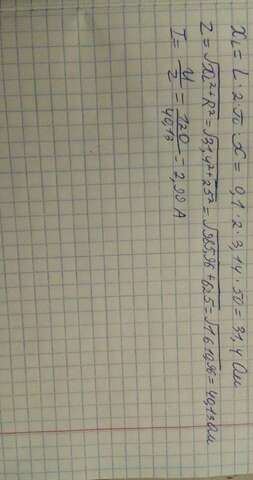 X_L = L · 2 · π · ж = 0,1 · 2 · 3,14 · 50 = 31,4 Ом
Z = √XL² + R² = √31,4² + 25² = √985,96 + 625 = √1610,96 = 40,13 Ом
I = U/Z = 120/40,13 = 2,99 А